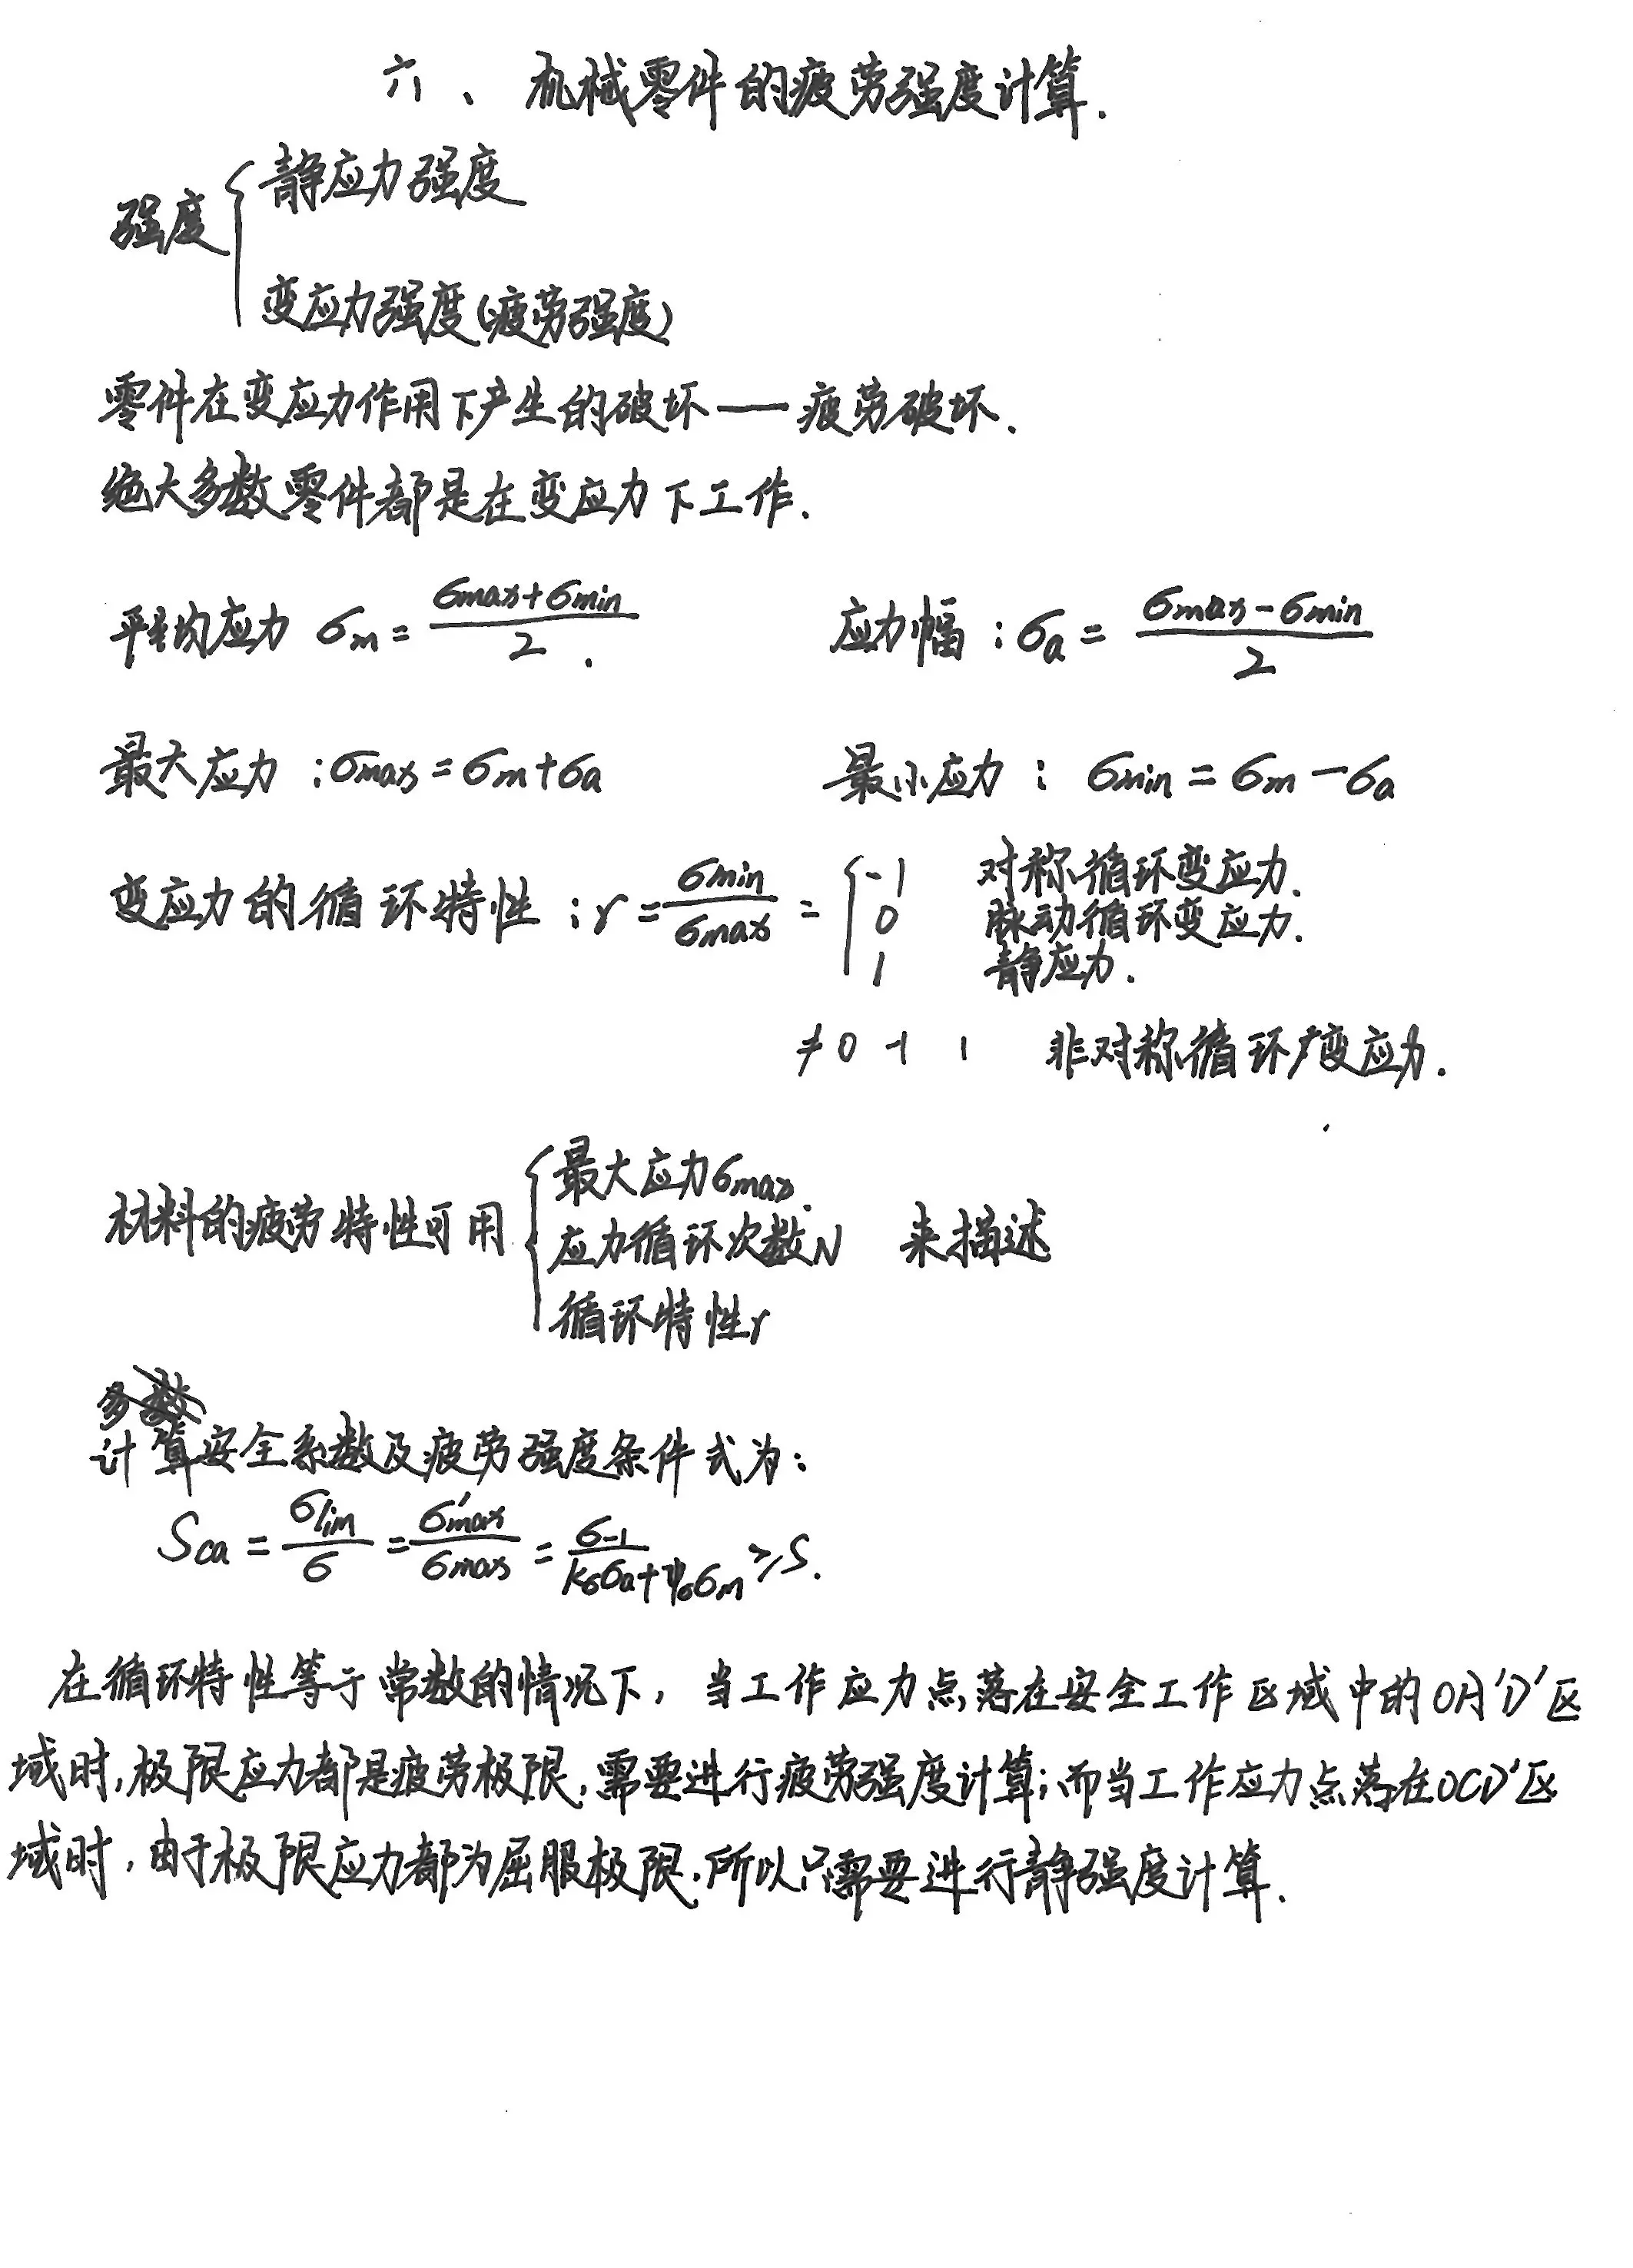 六、机械零件的疲劳强度计算.
强度{静应力强度
变应力强度(疲劳强度)
零件在变应力作用下产生的破坏——疲劳破坏.
绝大多数零件都是在变应力下工作.
平均应力 σm = (σmax+σmin)/2. 应力幅:σa = (σmax-σmin)/2
最大应力:σmax=σm+σa 最小应力: σmin=σm-σa
变应力的循环特性:r = σmin/σmax = { -1 对称循环变应力.
0 脉动循环变应力.
1 静应力.
≠0 -1 1 非对称循环变应力.
材料的疲劳特性可用{最大应力σmax.
应力循环次数N 来描述
循环特性r
计算安全系数及疲劳强度条件式为:
Sca = σlim/σ = σ'max/σmax = σ-1/(kσσa+ψσσm) ≥S.
在循环特性等于常数的情况下,当工作应力点落在安全工作区域中的OA'D'区
域时,极限应力都是疲劳极限,需要进行疲劳强度计算;而当工作应力点落在OCD'区
域时,由于极限应力都为屈服极限,所以只需要进行静强度计算.